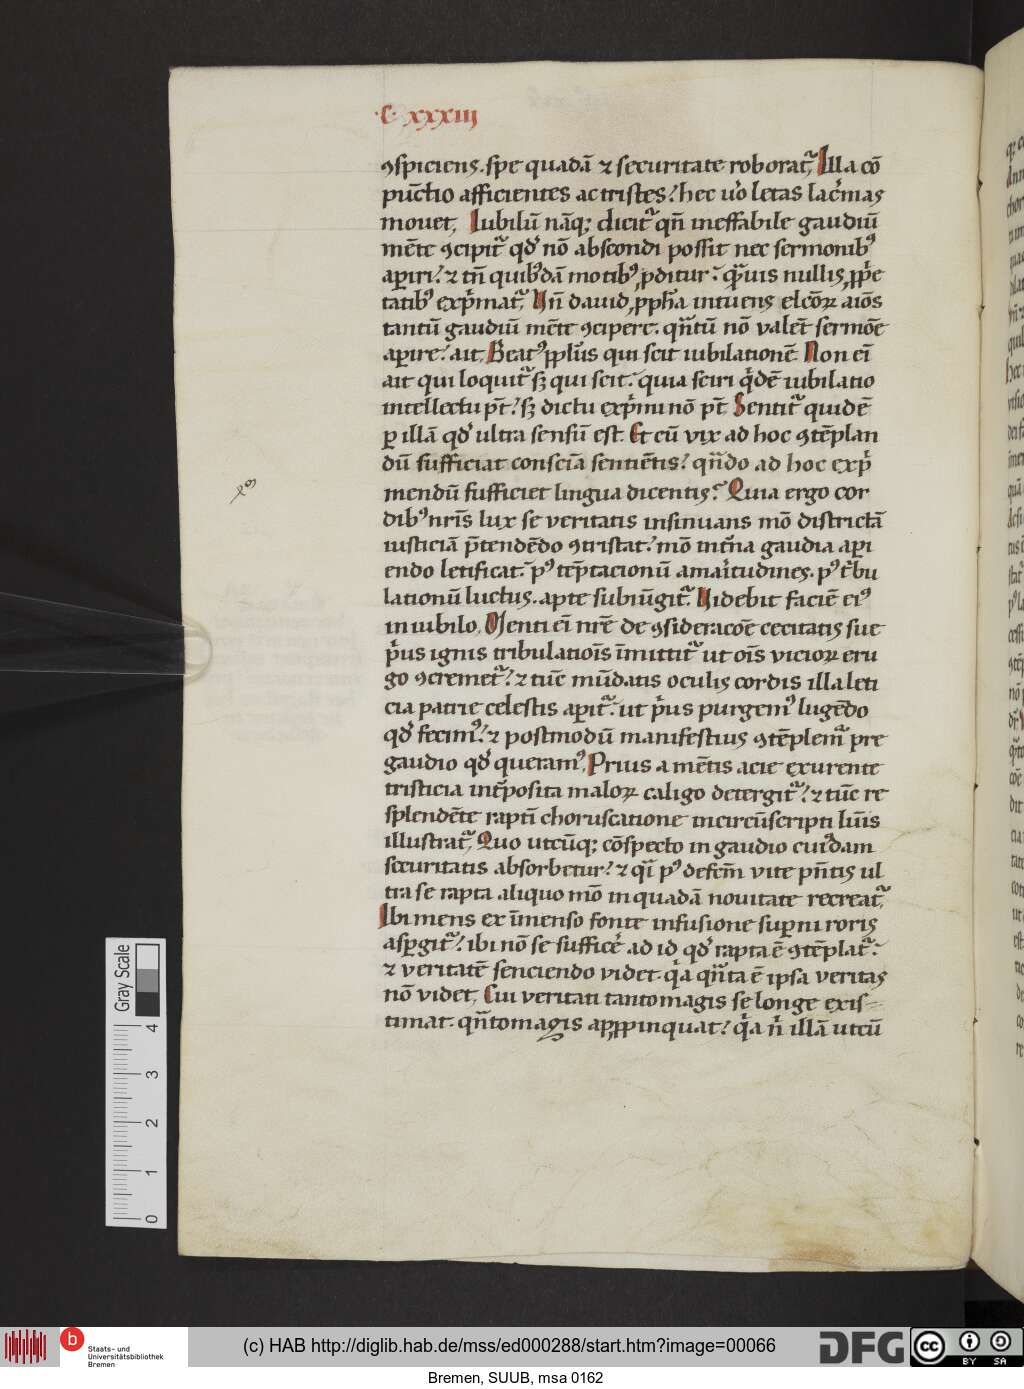 ·C· xxxiij
ꝯspiciens. spe quadā ⁊ securitate roborat᷑. Illa cō
pūctio afficientes ac tristes? hec uͦo letas lac̓mas
mouet. Iubilū nāq; dicit᷑ qn̄ ineffabile gaudiū
mēte ꝯcipit᷑ qd̓ nō abscondi possit nec sermonibꝰ
aꝑiri? ⁊ tn̄ quibꝰdā motibꝰ ꝓditur? qͣuis nullis ꝓpͥe
tatibꝰ expͥmat᷑. Vn̄ dauid ꝓpha intuens elcōꝝ aīos
tantū gaudiū mēte ꝯcipere. qn̄tū nō valēt sermōe
aꝑire? ait. Beatꝰ ppl̓us qui scit iubilationē. Non eī
ait qui loquit᷑ sꝫ qui scit. quia sciri qͥdē iubilatio
intellectu pt̄? sꝫ dictu expͥmi nō pt̄. Sentit᷑ quidē
ꝑ illā qd̓ ultra sensū est. Et cū vix ad hoc ꝯtēplan
dū sufficiat consciā sentiētis? qn̄do ad hoc expͥ
mendū sufficiet lingua dicentis? Quia ergo cor
dibꝰ nr̄is lux se veritatis insinuans mō districtā
iusticiā p̄tendēdo ꝯtristat? mō int̓na gaudia aꝑi
endo letificat. pꝰ tēptacionū amaritudines. pꝰ t̓bu
lationū luctus. apte subiūgit᷑. Videbit faciē eiꝰ
in iubilo. Menti eī nr̄e de ꝯsideracōe cecitatis sue
pͥus ignis tribulatiōis īmittit᷑ ut oīs vicioꝝ eru
go ꝯcremet᷑? ⁊ tūc mūdatis oculis cordis illa leti
cia patrie celestis aꝑit᷑. ut pͥus purgemꝰ lugēdo
qd̓ fecimꝰ? ⁊ postmodū manifestius ꝯtēplem᷑ pre
gaudio qd̓ queramꝰ. Prius a mētis acie exurente
tristicia int̓posita maloꝝ caligo detergit᷑? ⁊ tūc re
splendēte raptī choruscatione incircūscripti lūis
illustrat᷑. Quo utcūq; cōspecto in gaudio cuiꝰdam
securitatis absorbetur? ⁊ qͣi pꝰ defcm̄ vite pn̄tis ul
tra se rapta aliquo mō in quadā nouitate recreat᷑.
Ibi mens ex īmenso fonte infusione suꝑni roris
asꝑgit᷑? ibi nō se sufficē ad id qd̓ rapta ē ꝯtēplat᷑.
⁊ veritatē senciendo videt. qͥa qn̄ta ē ipsa veritas
nō videt. Cui veritati tanto magis se longe exis-
timat. qn̄to magis apꝓpinquat? qͥa nͥ illā utcū
Gray Scale
4
3
2
1
0
b
Staats- und
Universitätsbibliothek
Bremen
(c) HAB http://diglib.hab.de/mss/ed000288/start.htm?image=00066
DFG
cc
BY SA
Bremen, SUUB, msa 0162